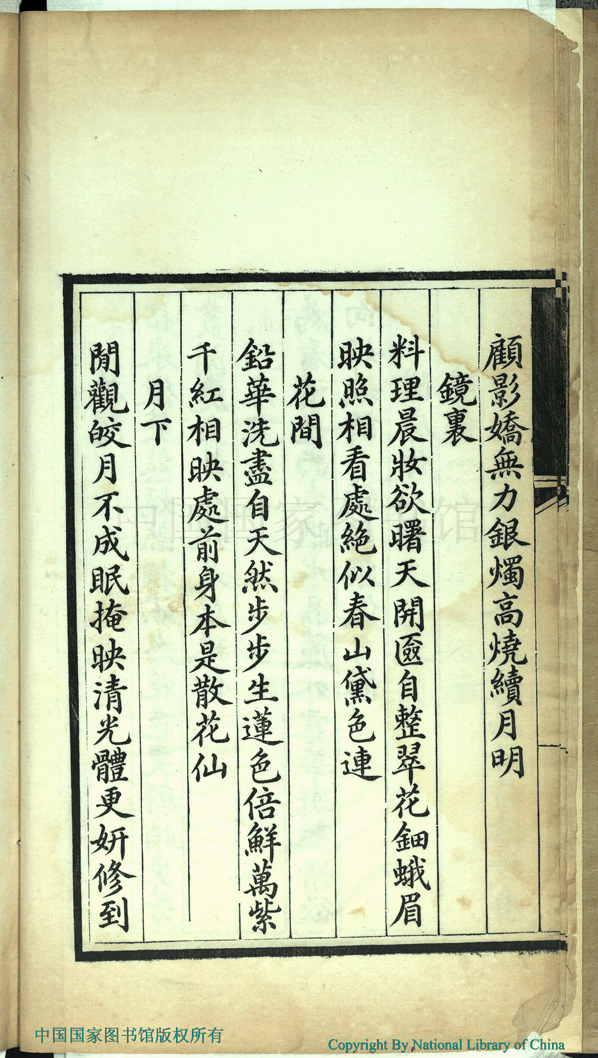 顧影嬌無力銀燭高燒續月明
鏡裏
料理晨妝欲曙天開匳自整翠花鈿蛾眉
映照相看處絕似春山黛色連
花間
鉛華洗盡自天然步步生蓮色倍鮮萬紫
千紅相映處前身本是散花仙
月下
閒觀皎月不成眠掩映清光體更妍修到
中国国家图书馆
中国国家图书馆版权所有
Copyright By National Library of China